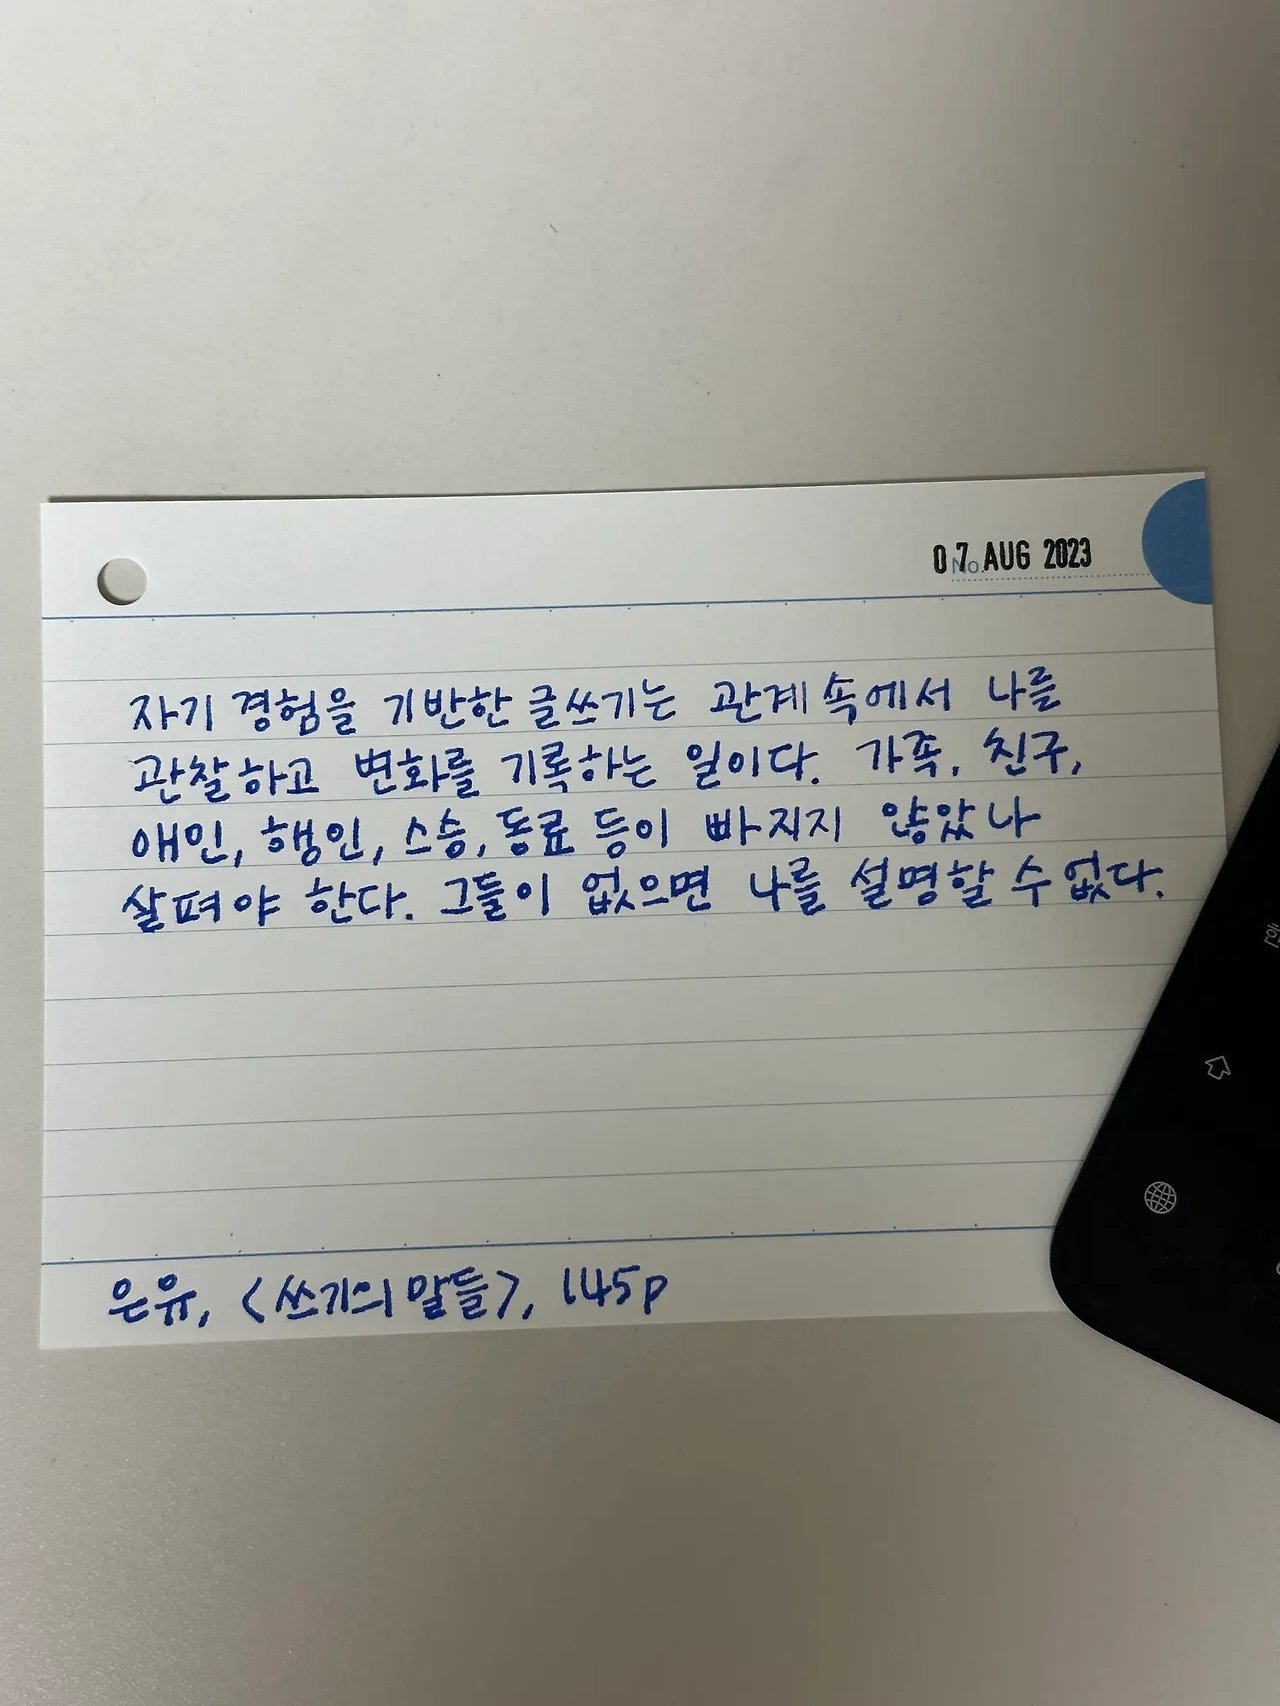 07 AUG 2023
No.
자기 경험을 기반한 글쓰기는 관계 속에서 나를
관찰하고 변화를 기록하는 일이다. 가족, 친구,
애인, 행인, 스승, 동료 등이 빠지지 않았나
살펴야 한다. 그들이 없으면 나를 설명할 수 없다.
은유, <쓰기의 말들>, 145p